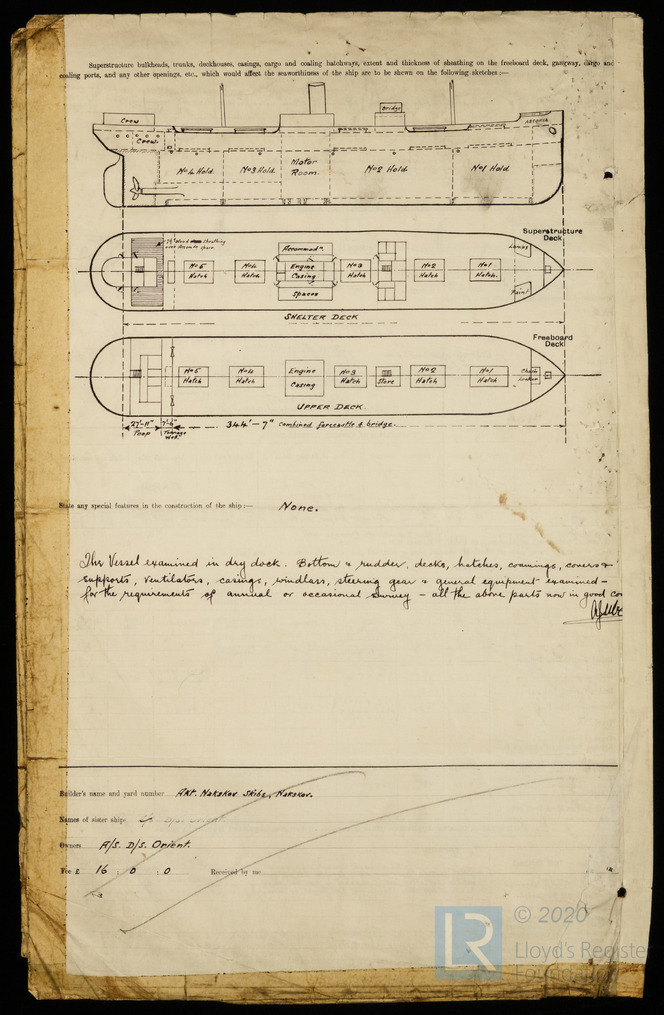 Superstructure bulkheads, trunks, deckhouses, casings, cargo and coaling hatchways, extent and thickness of sheathing on the freeboard deck, gangway, cargo and
coaling ports, and any other openings, etc., which would affect the seaworthiness of the ship are to be shewn on the following sketches:—
Bridge
Crew
Crew.
No4 Hold.
No3 Hold.
Motor
Room.
No2 Hold.
No1 Hold.
Superstructure
Deck
Wood sheathing
Accommodn.
Lamps
No5
Hatch
No4
Hatch
Engine
Casing
No3
Hatch
No2
Hatch
No1
Hatch.
Spaces
Paint
SHELTER DECK
Freeboard
Deck
No5
Hatch
No4
Hatch
Engine
Casing
No3
Hatch
Store
No2
Hatch
No1
Hatch
Chain
Locker
UPPER DECK.
27'-11"
Poop
7'-6"
Tonnage
Well.
344'-7" combined forecastle & bridge.
State any special features in the construction of the ship:— None.
This Vessel examined in dry dock. Bottom & rudder, decks, hatches, coamings, covers &
supports, ventilators, casings, windlass, steering gear & general equipment examined -
for the requirements of annual or occasional survey - all the above parts now in good
Builder's name and yard number Akt. Nakskov Skibs, Nakskov.
Names of sister ships
Owners A/S. D/S. Orient.
Fee £ 16 : 0 : 0 Received by me
LR
© 2020
Lloyd's Register
Foundation